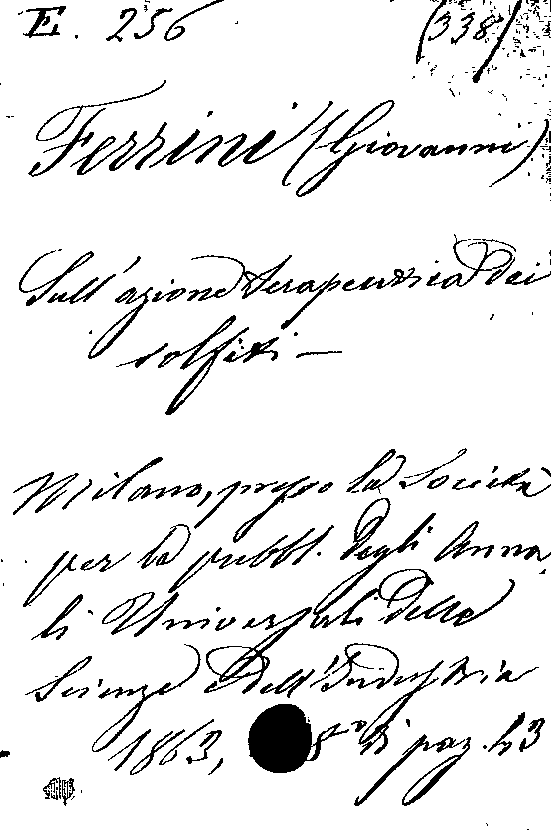 E. 256 (338)
Ferrini (Giovanni)
Sull'azione terapeutica dei
solfiti —
Milano, presso la Società
per la pubbl. degli Anna
li Universali delle
Scienze e dell'Industria
1863, 8° di pag. 43